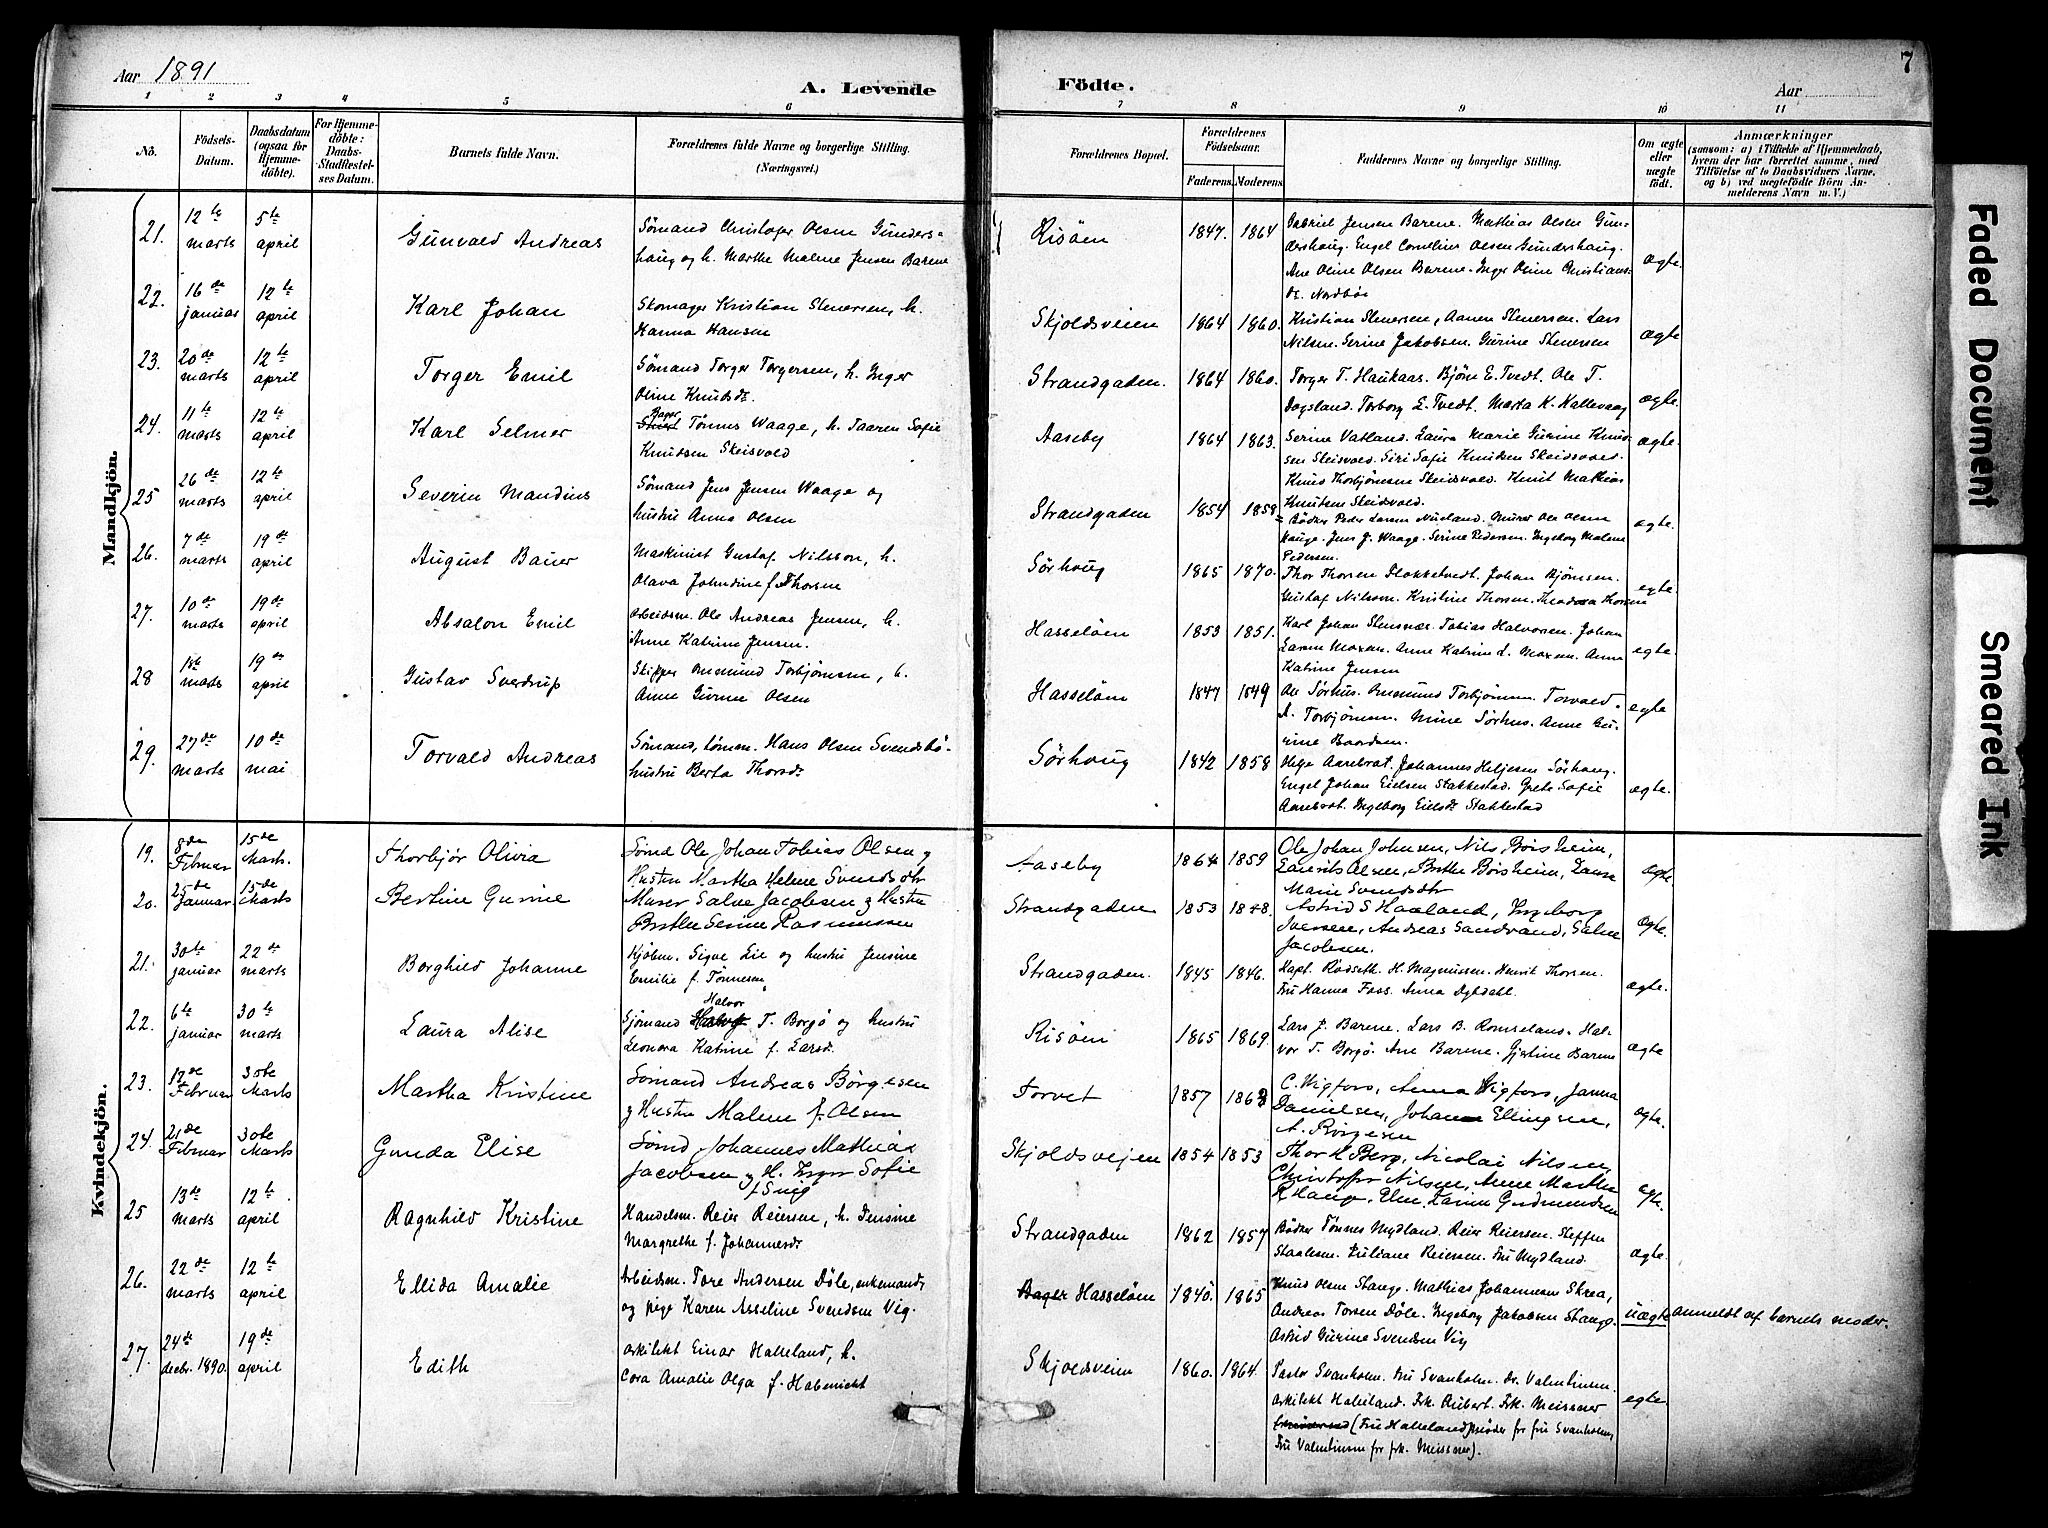 Aar 1891
A. Levende
Födte.
Aar
7
1 2 3 4 5 6 7 8 9 10 11
No.
Födsels-
Datum.
Daabsdatum
(ogsaa for
Hjemme-
döbte).
For Hjemme-
döbte:
Daabs-
Stadfæstel-
ses Datum.
Barnets fulde Navn.
Forældrenes fulde Navne og borgerlige Stilling.
(Næringsvei.)
Forældrenes Bopæl.
Forældrenes
Födselsaar.
Faderens. Moderens.
Faddernes Navne og borgerlige Stilling.
Om ægte
eller
uægte
födt.
Anmærkninger
(saasom: a) i Tilfælde af Hjemmedaab,
hvem der har forrettet samme, med
Tilföielse af to Daabsvidners Navne,
og b) ved uægtefödte Börn An-
melderens Navn m. V.)
Mandkjön.
21. 12te marts 5te april Gunvald Andreas
Sømand Christofer Olsen Gunders-
haug og h. Marthe Malene Jensen Barene
Risöen 1847. 1864
Gabriel Jensen Barene. Mathias Olsen Gun-
dershaug. Engel Cornelius Olsen Gundershaug.
Ane Oline Olsen Barene. Inger Oline Christians-
dr. Nordbö
ægte.
22. 16de januar 12te april Karl Johan
Skomager Kristian Stenersen, h.
Hanna Hansen
Skjoldsveien 1864 1860.
Kristian Stenersen, Aanen Stenersen. Lars
Nilsen. Serine Jakobsen. Gurine Stenersen
ægte
23. 20de marts 12te april Torger Emil
Sömand Torger Torgersen, h. Inger
Oline Knudsdr.
Strandgaden. 1864 1860.
Torger T. Haukaas. Bjørn E. Tvedt. Ole T.
Dagsland. Torborg E. Tvedt. Marta K. Kallevaag
ægte.
24. 11te marts 12te april Karl Selmer
Bager
Tönnes Waage, h. Taaren Sofie
Knudsen Skeisvold
Aaseby 1864 1863.
Serine Vatland. Laura Marie Gurine Knud-
sen Skeisvold. Siri Sofie Knudsen Skeidsvold.
Knud Thorbjörnsen Skeidsvold. Knut Mathias
Knutsen Skeidsvold.
ægte
25 26de marts 12te april Severin Mandius
Sömand Jens Jensen Waage og
hustru Anna Olsen
Strandgaden 1854 1859
Bödker Peder Larsen Nusland. Murer Ole Olsen
Hauge. Jens J. Waage. Serine Pedersen. Ingeborg Malene
Pedersen.
ægte.
26. 7de marts 19de april August Bauer
Maskinist Gustaf Nilsson, h.
Olava Johndine f. Thorsen
Sörhaug 1865 1870.
Thor Thorsen Flokketvedt. Johan Bjørnsen.
Gustaf Nilsson. Kristine Thorsen. Theodora Thorsen
egte.
27. 10de marts 19de april Absalon Emil
Arbeidsm. Ole Andreas Jensen, h.
Anne Katrine Jensen.
Hasselöen 1853 1851.
Karl Johan Stensnæs. Tobias Halvorsen. Johan
Larsen Moxen. Anne Katrine L. Moxen. Anne
Katrine Jensen
egte.
28 18de marts 19de april Gustav Sverdrup
Skipper Amund Torbjörnsen, h.
Anne Gurine Olsen
Hasselöen 1847 1849
Ole Sørhus. Amund Torbjörnsen. Torvald
A. Torbjörnsen. Mine Sørhus. Anne Gu-
rine Baardsen.
egte
29. 27de marts 10de mai Torvald Andreas
Sömand, tömm. Hans Olsen Svendsbö.
hustru Berta Thorsdr.
Sörhaug 1842 1858
Helge Aarebrot. Johannes Heljesen Sörhaug.
Engel Johan Eielsen Stakkestad. Grete Sofie
Aarebrot. Ingeborg Eielsdr. Stakkestad
ægte.
Kvindekjön.
19. 8de Februar 15de Marts. Thorbjör Olivia
Sömd Ole Johan Tobias Olsen og
Hustru Martha Helene Svendsdtr
Aaseby 1864 1859
Ole Johan Johnsen, Nils Börsheim,
Laurits Olsen, Berthe Börsheim, Laura
Marie Svendsdtr
ægte
20. 25de Januar 15de Marts Bertine Gurine
Murer Salve Jacobsen og Hustru
Berthe Serine Rasmussen
Strandgaden 1853 1848.
Astrid S Haaland, Ingeborg
Iversen, Andreas Sandvand, Salve
Jacobsen.
ægte.
21. 30te januar 22de marts Borghild Johanne
Kjöbm. Sigve Lie og hustru Jensine
Emilie f. Tönnesen
Strandgaden. 1845 1846.
Kapt. Rödseth. H. Magnussen. Henrik Thorsen.
Fru Hanna Foss. Anna Dybdahl.
ægte.
22. 6te januar 30te marts Laura Alise
Halvor
Sjömand T. Borgö og hustru
Leonora Katrine f. Larsdr.
Risöen 1865 1869
Lars J. Barene. Lars B. Romseland. Hal-
vor T. Borgö. Ane Barene. Gjertine Barene
ægte
23. 13de Februar 30te Marts Martha Kristine
Sömand Andreas Börgesen
og Hustru Malene f. Olsen
Torvet 1857 1863
C. Wigfors, Anna Wigfors, Janna
Danielsen, Johan Ellingsen,
A. Börgesen
egte.
24. 21de Februar 30te Marts Gunda Elise
Sömd Johannes Mathias
Jacobsen og H. Inger Sofie
f Svig
Skjoldsvejen 1854 1853
Thor K Berg, Nicolai Nilsen,
Christoffer Nilsen, Anne Marthe
R Haug, Elen Larine Gudmundsen
egte.
25 13de marts 12te april Ragnhild Kristine
Handelsm. Reier Reiersen, h. Jensine
Margrethe f. Johannesdr.
Strandgaden 1862 1857
Bödker Tönnes Mydland. Reier Reiersen. Steffen
Staalesen. Juliane Reiersen. Fru Mydland.
ægte.
26. 22de marts 12te april Ellida Amalie
Arbeidsm. Tore Andersen Döle, enkemand,
og pige Karen Asseline Svendsen Vig.
Hasselöen 1840. 1865
Knud Olsen Stange. Mathias Johannesen Skrea,
Andreas Torsen Döle. Ingeborg Jakobsen Stange.
Astrid Gurine Svendsen Vig
uægte anmeldt af barnets moder.
27. 24de decbr. 1890. 19de april Edith
arkitekt Einar Halleland, h.
Cora Amalie Olga f. Habenicht
Skjoldsveien 1860. 1864
Pastor Svanholm. Fru Svanholm. Dr. Valentinsen.
Arkitekt Halleland. Frk. Aubert. Frk. Meissner
(Fru Halleland möder for fru Svanholm,
Fru Valentinsen for frk. Meissner).
egte.
Faded Document
Smeared Ink